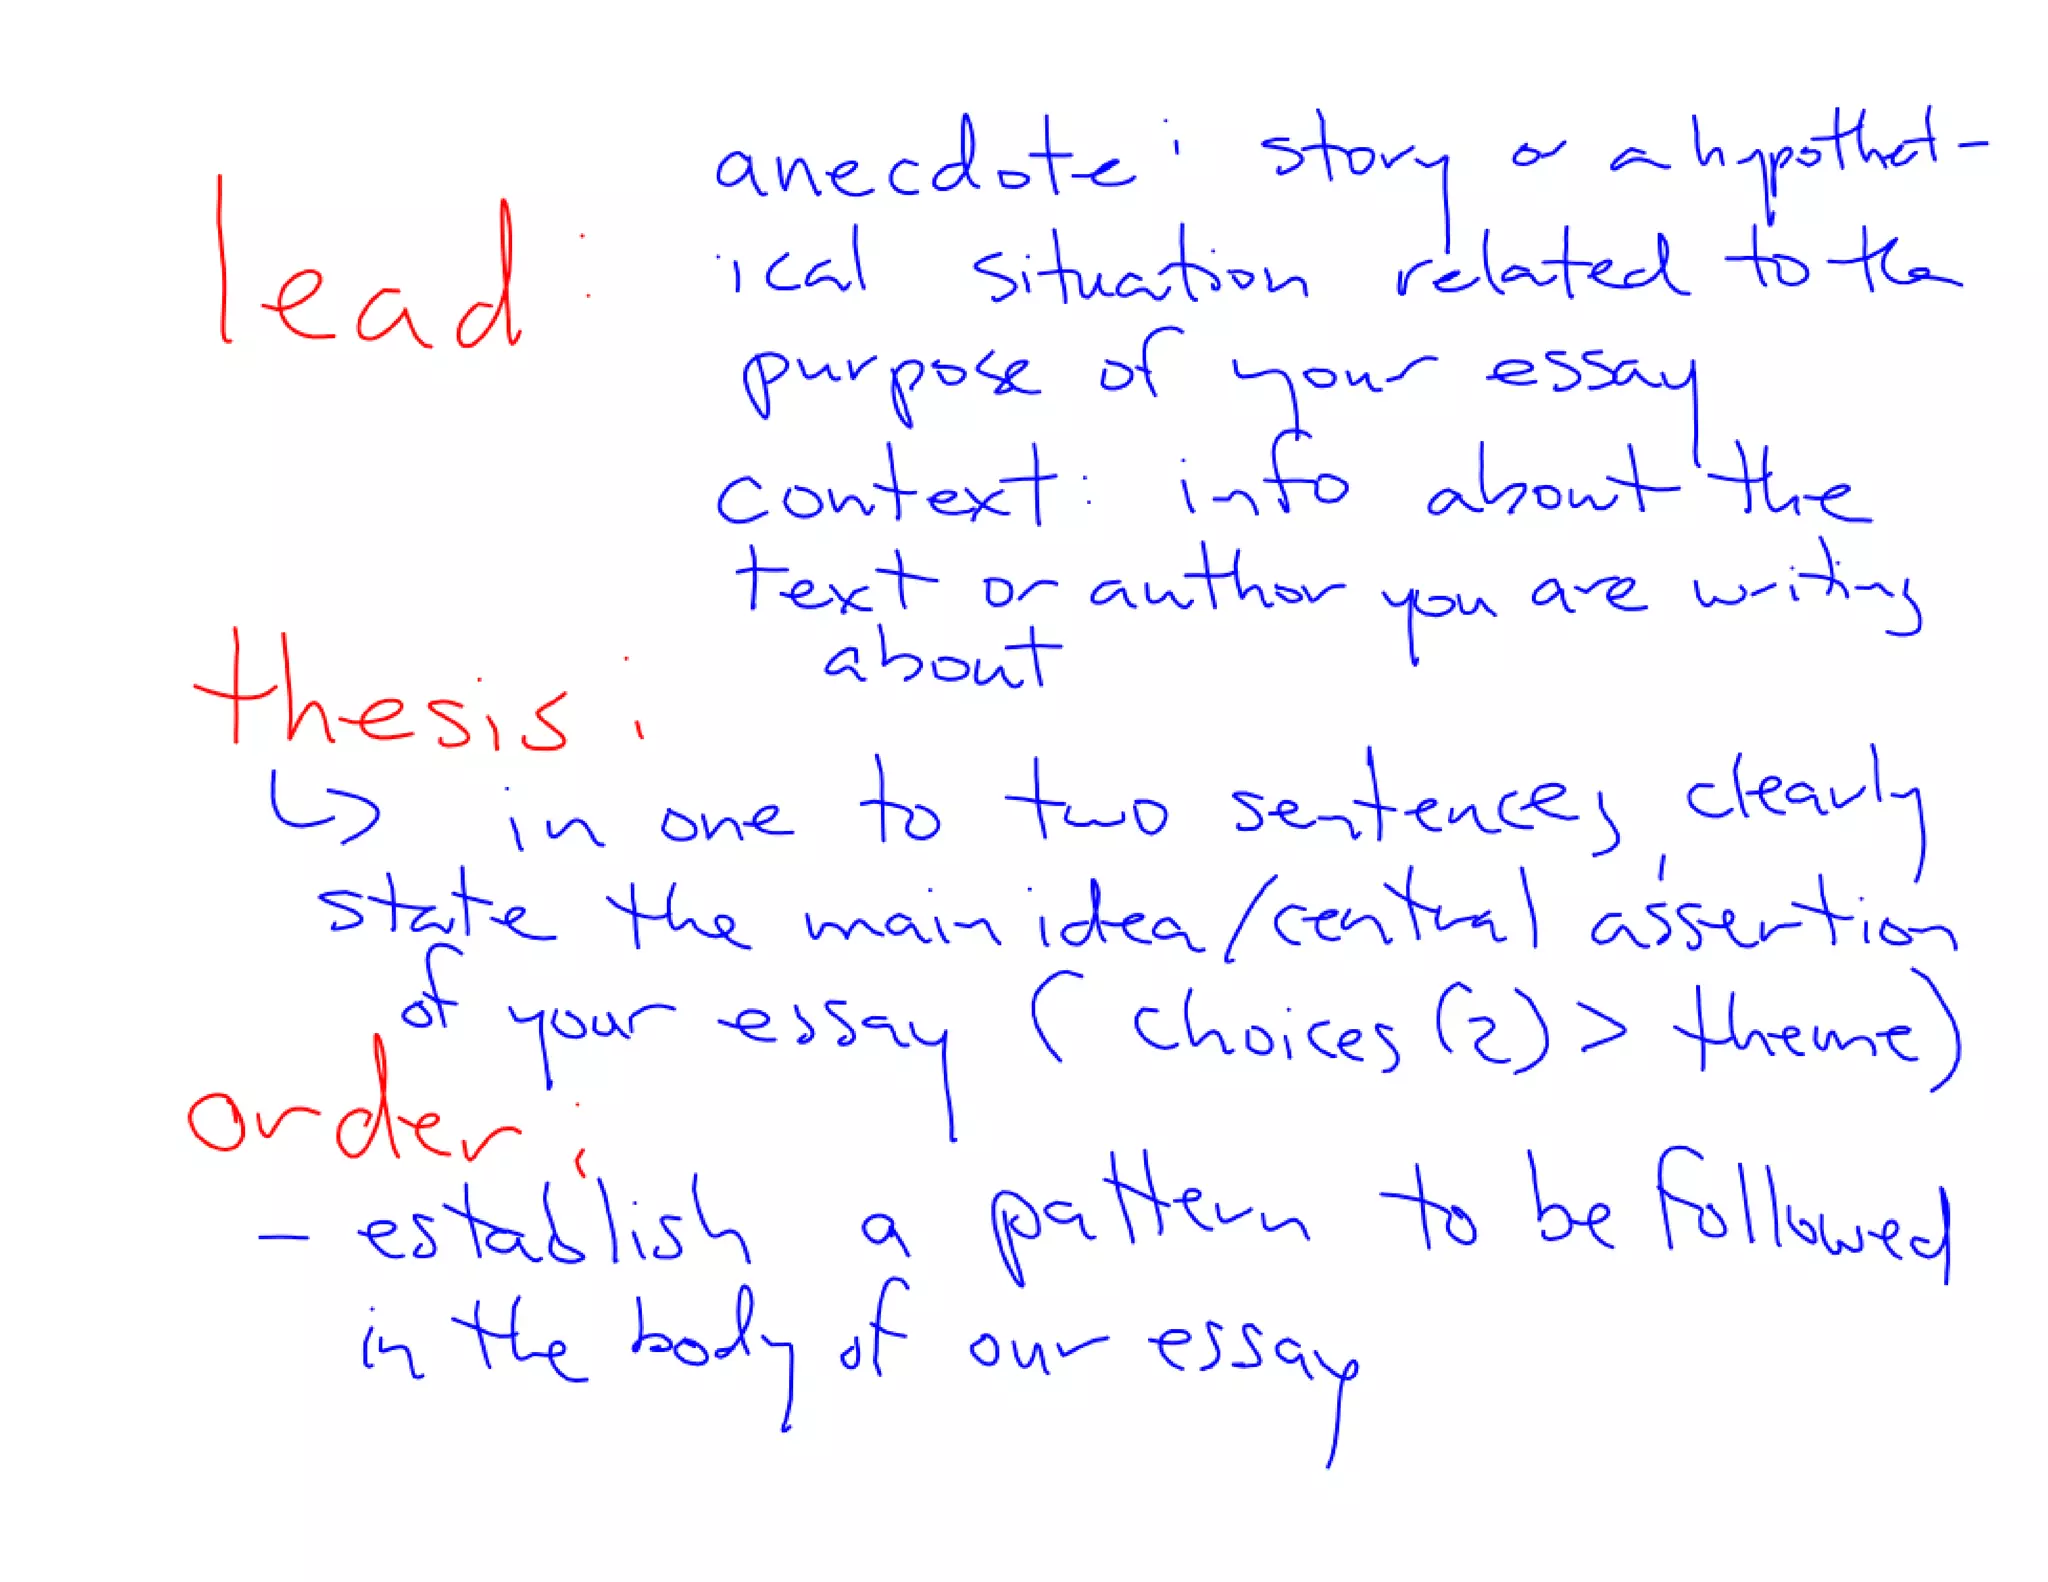 lead:
anecdote: story or a hypothet-
ical situation related to the
purpose of your essay
context: info about the
text or author you are writing
about
thesis:
↳ in one to two sentences, clearly
state the main idea/central assertion
of your essay (choices (2) > theme)
order:
- establish a pattern to be followed
in the body of our essay